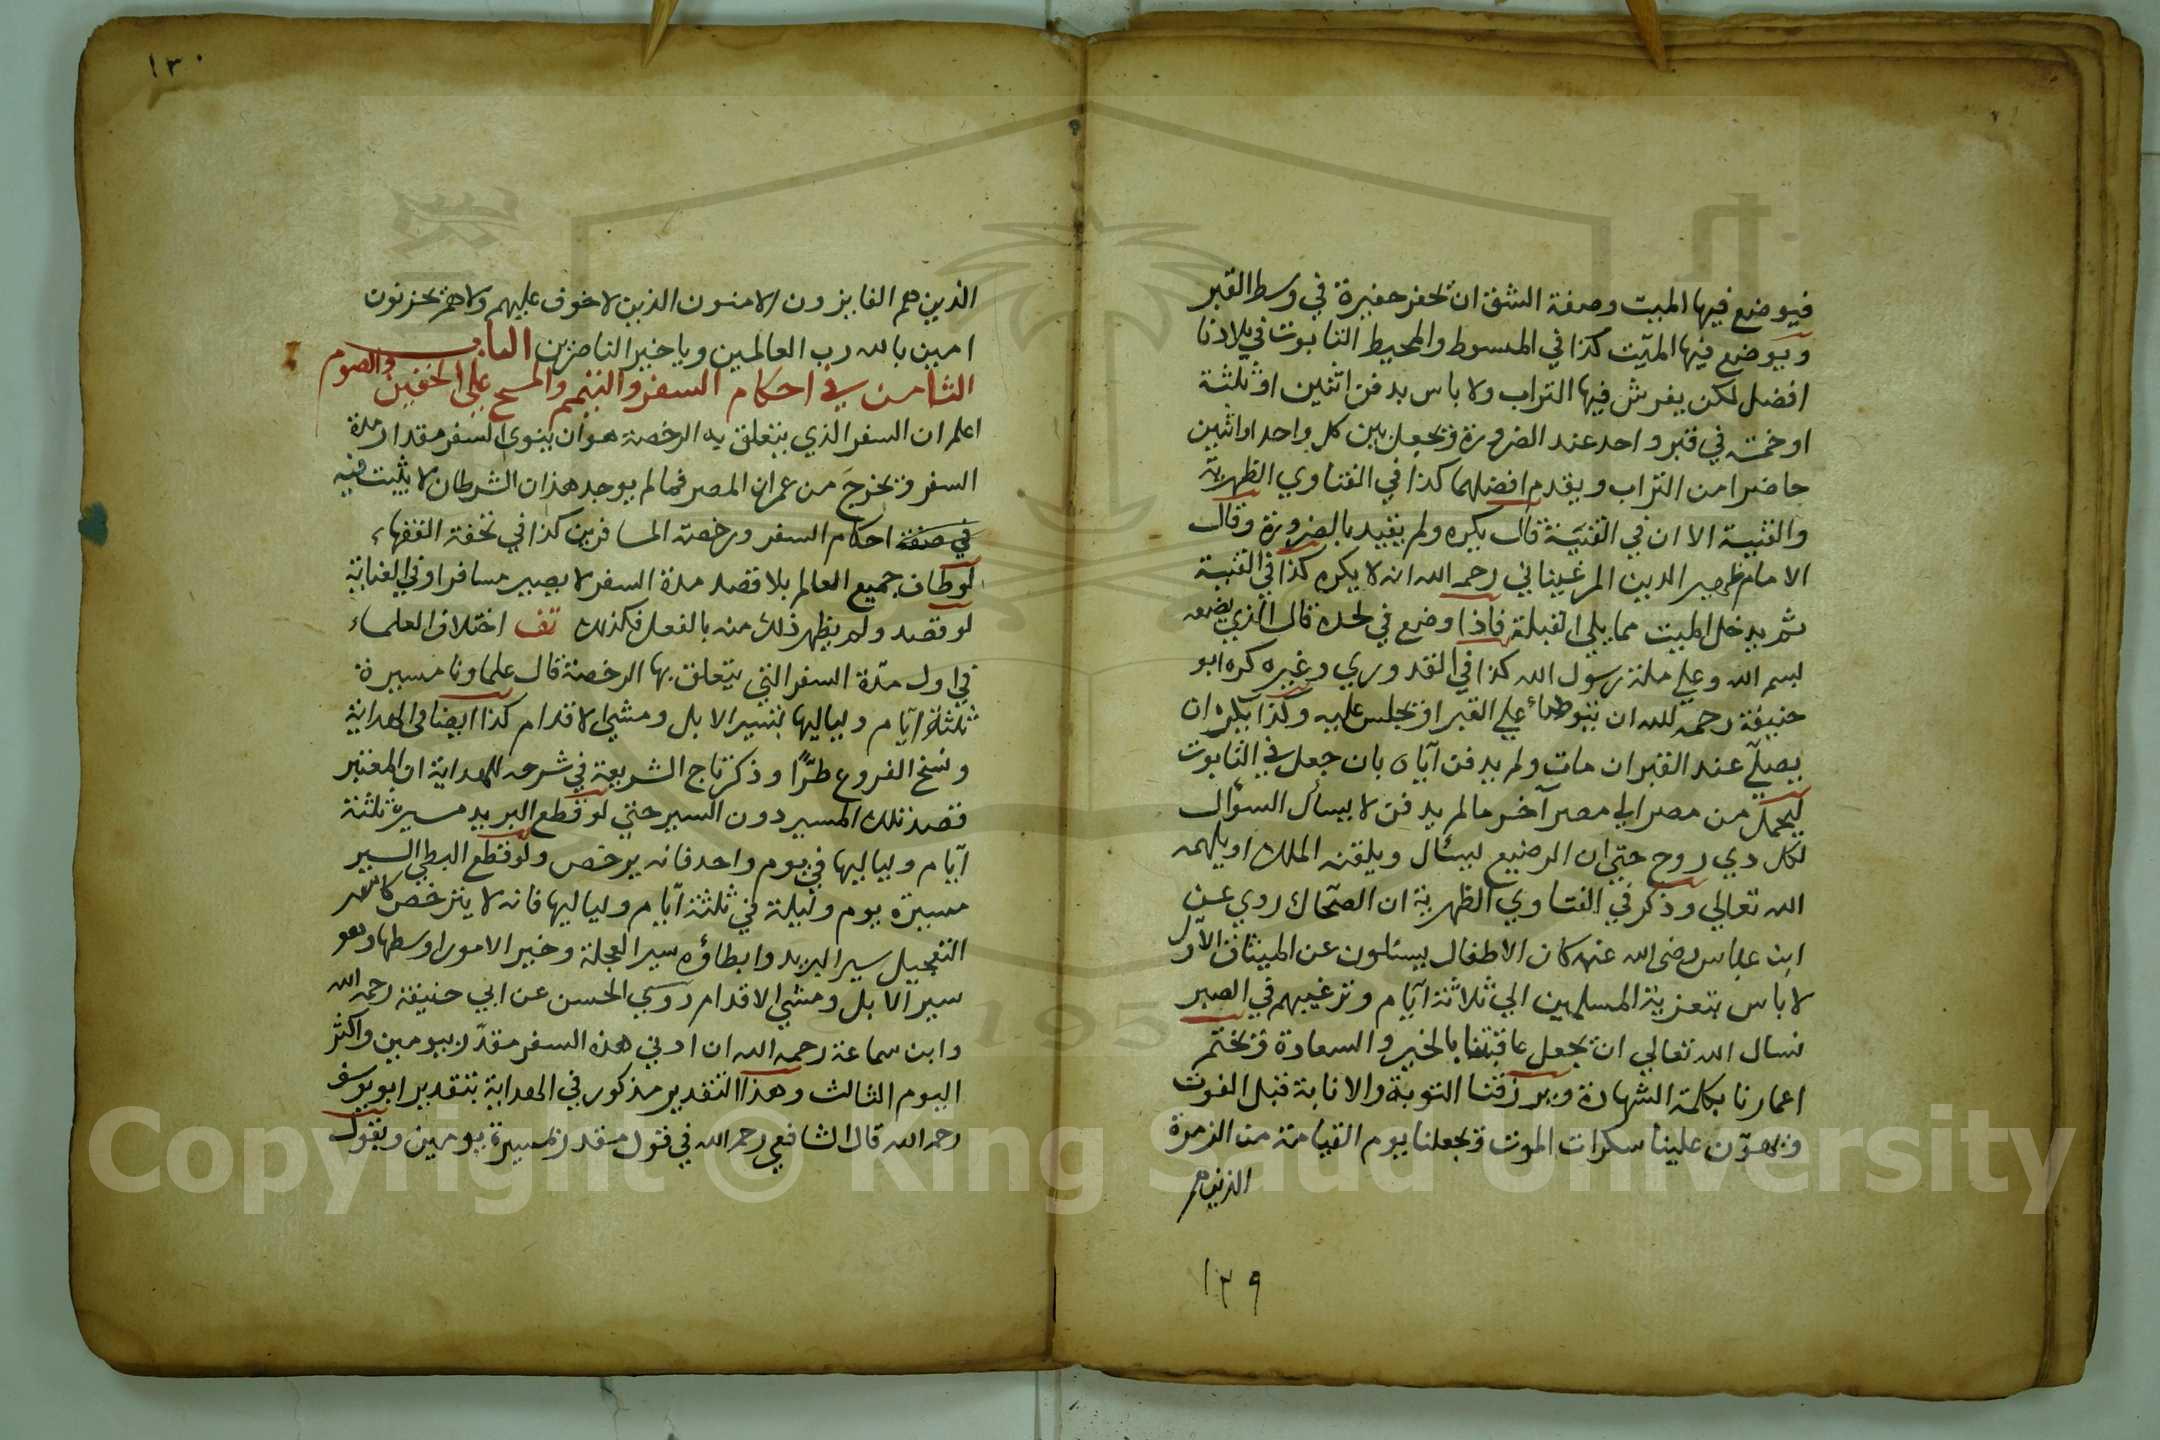 فيوضع فيها الميت وصفة الشق ان تحفر حفيرة في وسط القبر
ويوضع فيها الميّت كذا في المبسوط والمحيط التابوت في بلادنا
افضل لكن يفرش فيها التراب ولا باس بدفن اثنين او ثلثة
او خمسة في قبر واحد عند الضرورة ويجعل بين كل واحد او اثنين
حاضرا من التراب ويقدم افضلهما كذا في الفتاوي الظهيريّة
والقنية الا ان في القنية قال يكره ولم يقيد بالضرورة وقال
الامام ظهير الدين المرغيناني رحمه الله انه لا يكره كذا في القنية
ثم يدخل الميت مما يلي القبلة فاذا وضع في لحده قال الذي يضعه
بسم الله وعلي ملة رسول الله كذا في القدوري وغيره كره ابو
حنيفة رحمه الله ان يتوطاء علي القبر او يجلس عليه وكذا يكره ان
يصلّي عند القبر ان مات ولم يدفن اياه بان جعل في التابوت
ليحمل من مصر الي مصر آخر ما لم يدفن لا يسأل السؤال
لكل ذي روح حتي ان الرضيع ليسئال ويلقنه الملك او يلهمه
الله تعالي وذكر في الفتاوي الظهيرية ان الضحاك روي عن
ابن عباس رضي الله عنه كان الاطفال يسئلون عن الميثاق الاول
لا باس بتعزية المسلمين الي ثلاثة ايّام وترغيبهم في الصبر
نسال الله تعالي ان يجعل عاقبتنا بالخير والسعادة ويختم
اعمارنا بكلمة الشهادة ويرزقنا التوبة والانابة قبل الفوت
ويهوّن علينا سكرات الموت ويجعلنا يوم القيامة من الزمرة
الذين هم
١٢٩
١٣٠
الذين هم الفايزون الامنون الذين لا خوف عليهم ولا هم يحزنون
امين بالله رب العالمين ويا خير الناصرين الباب
الثامن في احكام السفر والتيمم والمسح علي الخفين والصوم
اعلم ان السفر الذي يتعلق به الرخصة هو ان ينوي السفر مقدار مدة
السفر ويخرج من عمران المصر فما لم يوجد هذان الشرطان لا يثبت فيه
في صفة احكام السفر ورخصة المسافرين كذا في تحفة الفقهاء
لو طاف جميع العالم بلا قصد مدة السفر لا يصير مسافرا وفي الغياثية
لو قصد ولم يظهر ذلك منه بالفعل فكذلك تف اختلاف العلماء
في اول مدّة السفر التي يتعلق بها الرخصة قال علماونا مسيرة
ثلثة ايّام ولياليها بسير الابل ومشي الاقدام كذا ايضا في الهداية
ونسخ الفروع طرًّا وذكر تاج الشريعة في شرحه للهداية ان المعتبر
قصد تلك المسير دون السير حتي لو قطع البريد مسيرة ثلثة
ايّام ولياليها في يوم واحد فانه يرخص ولو قطع البطي السير
مسيرة يوم وليلة في ثلثة ايّام ولياليها فانه لا يترخص
التعجيل سير البريد وابطاؤه سير العجلة وخير الامور اوسطها وهو
سير الابل ومشي الاقدام روي الحسن عن ابي حنيفة رحمه الله
وابن سماعة رحمه الله ان ادني هذه السفر مقدّر بيومين واكثر
اليوم الثالث وهذا التقدير مذكور في الهداية بتقدير ابو يوسف
رحمه الله قال الشافعي رحمه الله في قول مقدر بمسيرة يومين ويقول
Copyright © King Saud University
195